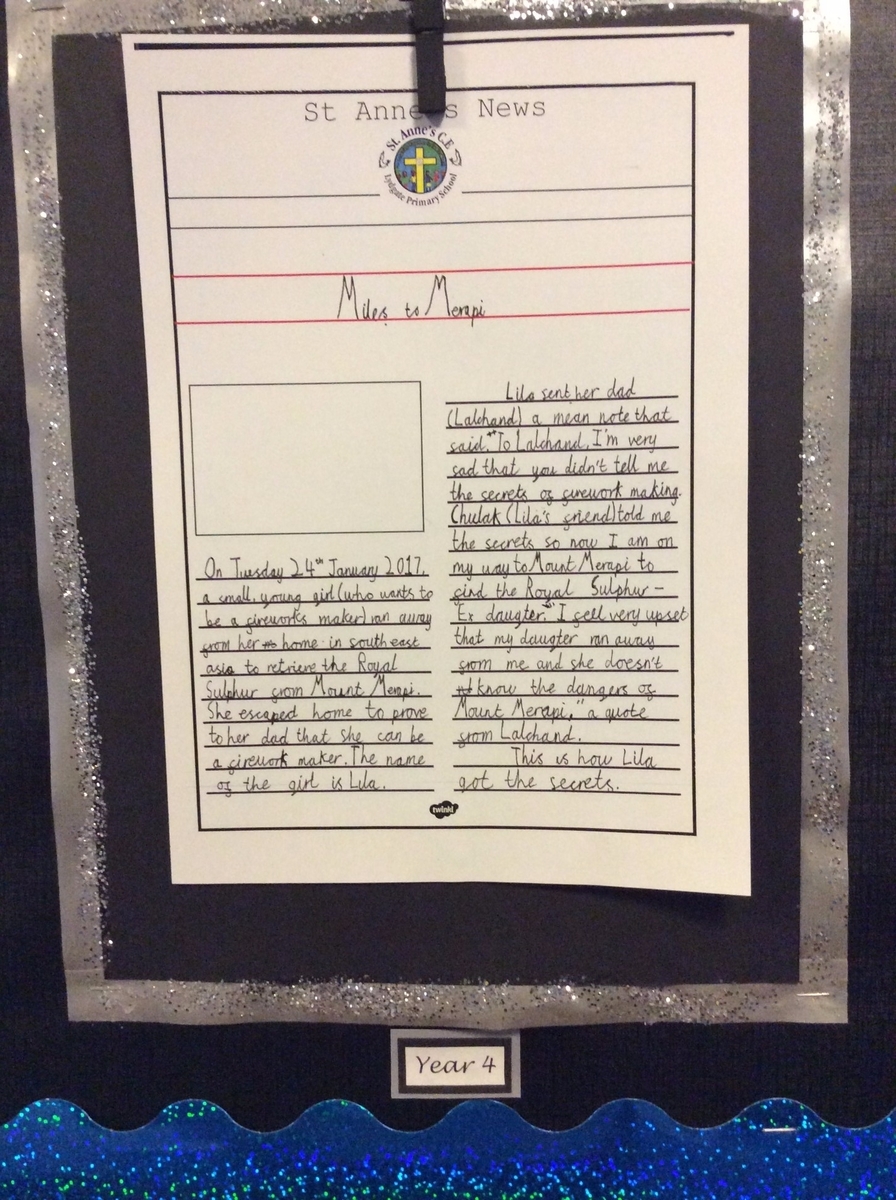 St Anne's News
St. Anne's C.E
Lydgate Primary School
Miles to Merapi
On Tuesday 24th January 2017,
a small, young girl (who wants to
be a fireworks maker) ran away
from her home in south east
asia to retrieve the Royal
Sulphur from Mount Merapi.
She escaped home to prove
to her dad that she can be
a firework maker. The name
of the girl is Lila.
Lila sent her dad
(Lalchand) a mean note that
said, "To Lalchand, I'm very
sad that you didn't tell me
the secrets of firework making.
Chulak (Lila's friend) told me
the secrets so now I am on
my way to Mount Merapi to
find the Royal Sulphur -
Ex daugter." "I fell very upset
that my daugter ran away
from me and she doesn't
know the dangers of
Mount Merapi," a quote
from Lalchand.
This is how Lila
got the secrets.
twinkl
Year 4